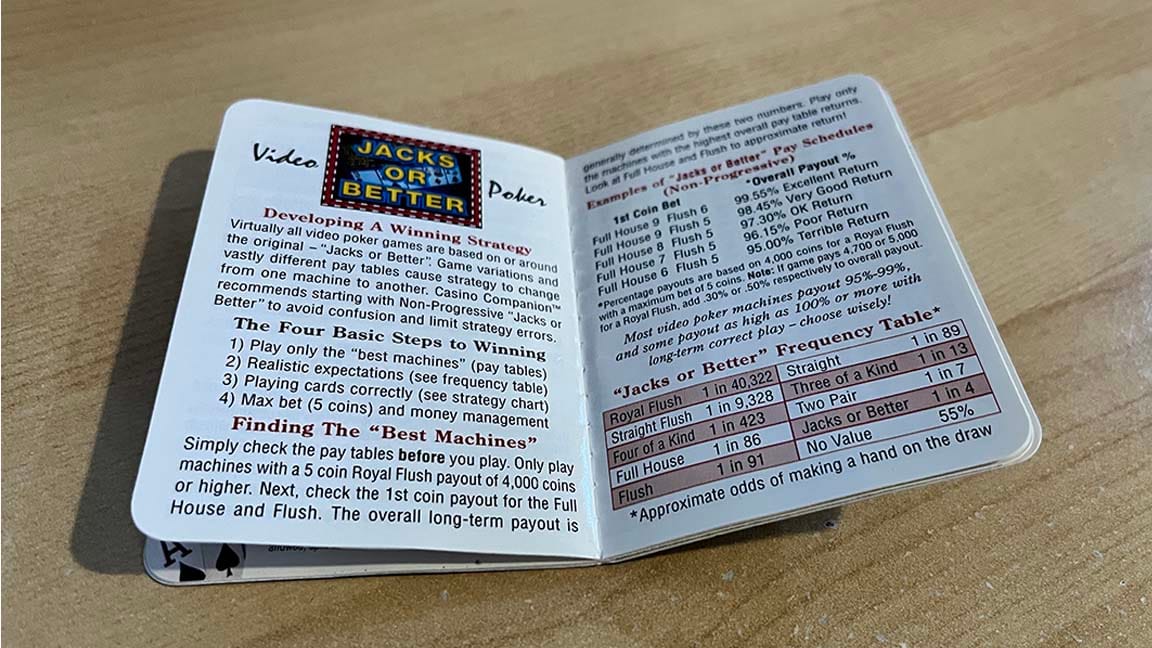 Video
JACKS
OR
BETTER
Poker
Developing A Winning Strategy
Virtually all video poker games are based on or around
the original – “Jacks or Better”. Game variations and
vastly different pay tables cause strategy to change
from one machine to another. Casino Companion™
recommends starting with Non-Progressive “Jacks or
Better” to avoid confusion and limit strategy errors.
The Four Basic Steps to Winning
1) Play only the “best machines” (pay tables)
2) Realistic expectations (see frequency table)
3) Playing cards correctly (see strategy chart)
4) Max bet (5 coins) and money management
Finding The “Best Machines”
Simply check the pay tables before you play. Only play
machines with a 5 coin Royal Flush payout of 4,000 coins
or higher. Next, check the 1st coin payout for the Full
House and Flush. The overall long-term payout is
A
generally determined by these two numbers. Play only
the machines with the highest overall pay table returns.
Look at Full House and Flush to approximate return!
Examples of “Jacks or Better” Pay Schedules
(Non-Progressive)
1st Coin Bet *Overall Payout %
Full House 9 Flush 6 99.55% Excellent Return
Full House 9 Flush 5 98.45% Very Good Return
Full House 8 Flush 5 97.30% OK Return
Full House 7 Flush 5 96.15% Poor Return
Full House 6 Flush 5 95.00% Terrible Return
*Percentage payouts are based on 4,000 coins for a Royal Flush
with a maximum bet of 5 coins. Note: If game pays 4,700 or 5,000
for a Royal Flush, add .30% or .50% respectively to overall payout.
Most video poker machines payout 95%-99%,
and some payout as high as 100% or more with
long-term correct play – choose wisely!
“Jacks or Better” Frequency Table*
Royal Flush 1 in 40,322 Straight 1 in 89
Straight Flush 1 in 9,328 Three of a Kind 1 in 13
Four of a Kind 1 in 423 Two Pair 1 in 7
Full House 1 in 86 Jacks or Better 1 in 4
Flush 1 in 91 No Value 55%
*Approximate odds of making a hand on the draw